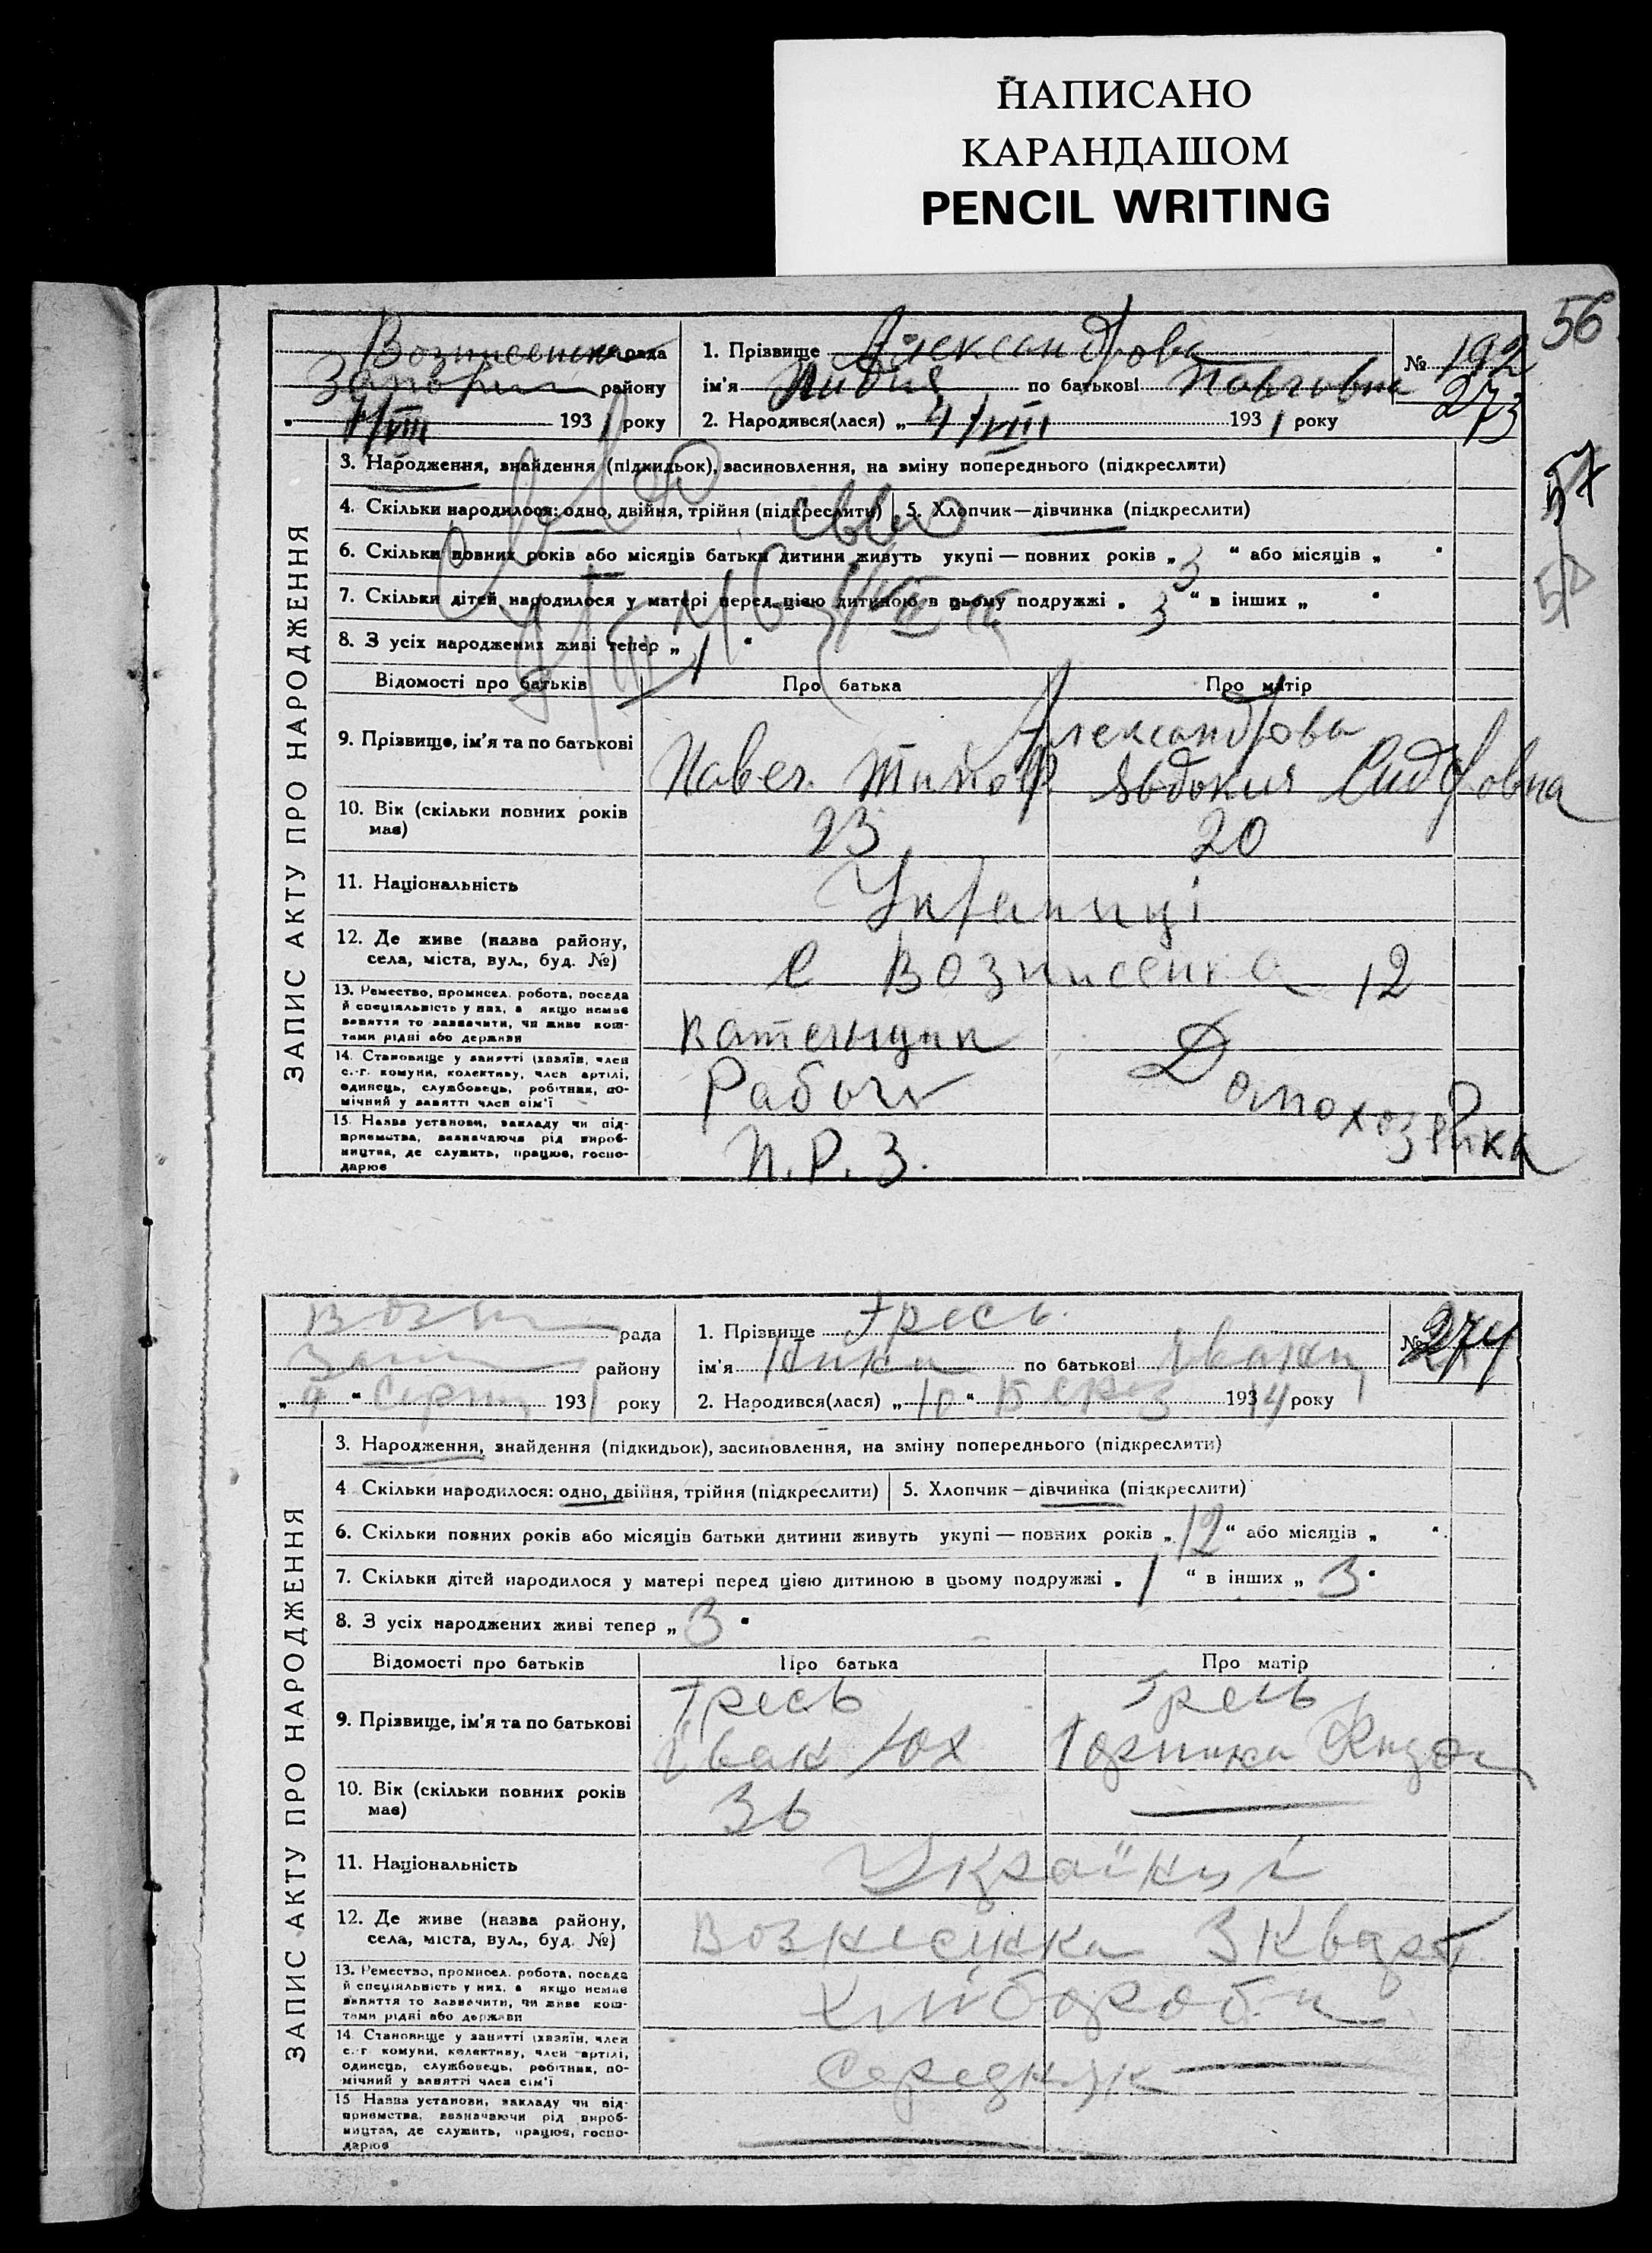 НАПИСАНО
КАРАНДАШОМ
PENCIL WRITING
56
57
ЗАПИС АКТУ ПРО НАРОДЖЕННЯ
Вознисенка рада
району
7/VIII 1931 року
1. Прізвище Александрова
ім'я Лидия по батькові Павловна
2. Народився(лася) „ 4/VIII 1931 року
№ 192
273
3. Народження, знайдення (підкидьок), засиновлення, на зміну попереднього (підкреслити)
4. Скільки народилося: одно, двійня, трійня (підкреслити) 5. Хлопчик—дівчинка (підкреслити)
6. Скільки повних років або місяців батьки дитини живуть укупі — повних років „ 3 “ або місяців „ “
7. Скільки дітей народилося у матері перед цією дитиною в цьому подружжі „ 3 “ в інших „ “
8. З усіх народжених живі тепер „ 1 “
Відомості про батьків Про батька Про матір
9. Прізвище, ім'я та по батькові
Александрова
Павел Тимоф Явдокия Сидоровна
10. Вік (скільки повних років має) 23 20
11. Національність Українці
12. Де живе (назва району, села, міста, вул., буд. №) с Вознисенка 12
13. Ремество, промисел, робота, посада й спеціяльність у них, а якщо немає заняття то зазначити, чи живе коштами рідні або держави
14. Становище у занятті (хазяїн, член с.-г. комуни, колективу, член артілі, одинець, службовець, робітник, помічний у занятті член сім'ї Рабочи Домохозяйка
15. Назва установи, закладу чи підприємства, зазначаючи рід виробництва, де служить, працює, господарює П.Р.З.
ЗАПИС АКТУ ПРО НАРОДЖЕННЯ
Возн рада
Зап району
„ 9 “ Серпн 1931 року
1. Прізвище Гресь
ім'я по батькові Івановн
2. Народився(лася) „ 10 “ Берез 1914 року
№ 274
3. Народження, знайдення (підкидьок), засиновлення, на зміну попереднього (підкреслити)
4 Скільки народилося: одно, двійня, трійня (підкреслити) 5. Хлопчик—дівчинка (підкреслити)
6. Скільки повних років або місяців батьки дитини живуть укупі — повних років „ 12 “ або місяців „ “
7. Скільки дітей народилося у матері перед цією дитиною в цьому подружжі „ 1 “ в інших „ 3 “
8. З усіх народжених живі тепер „ 3 “
Відомості про батьків Про батька Про матір
9. Прізвище, ім'я та по батькові
Гресь Гресь
Іван Юх
10. Вік (скільки повних років має) 36
11. Національність Українці
12. Де живе (назва району, села, міста, вул., буд. №) Вознесенка 3 Кварт
13. Ремество, промисел, робота, посада й спеціяльність у них, а якщо немає заняття то зазначити, чи живе коштами рідні або держави Хлібороби
14. Становище у занятті (хазяїн, член с.-г. комуни, колективу, член артілі, одинець, службовець, робітник, помічний у занятті член сім'ї Середняк
15 Назва установи, закладу чи підприємства, зазначаючи рід виробництва, де служить, працює, господарює